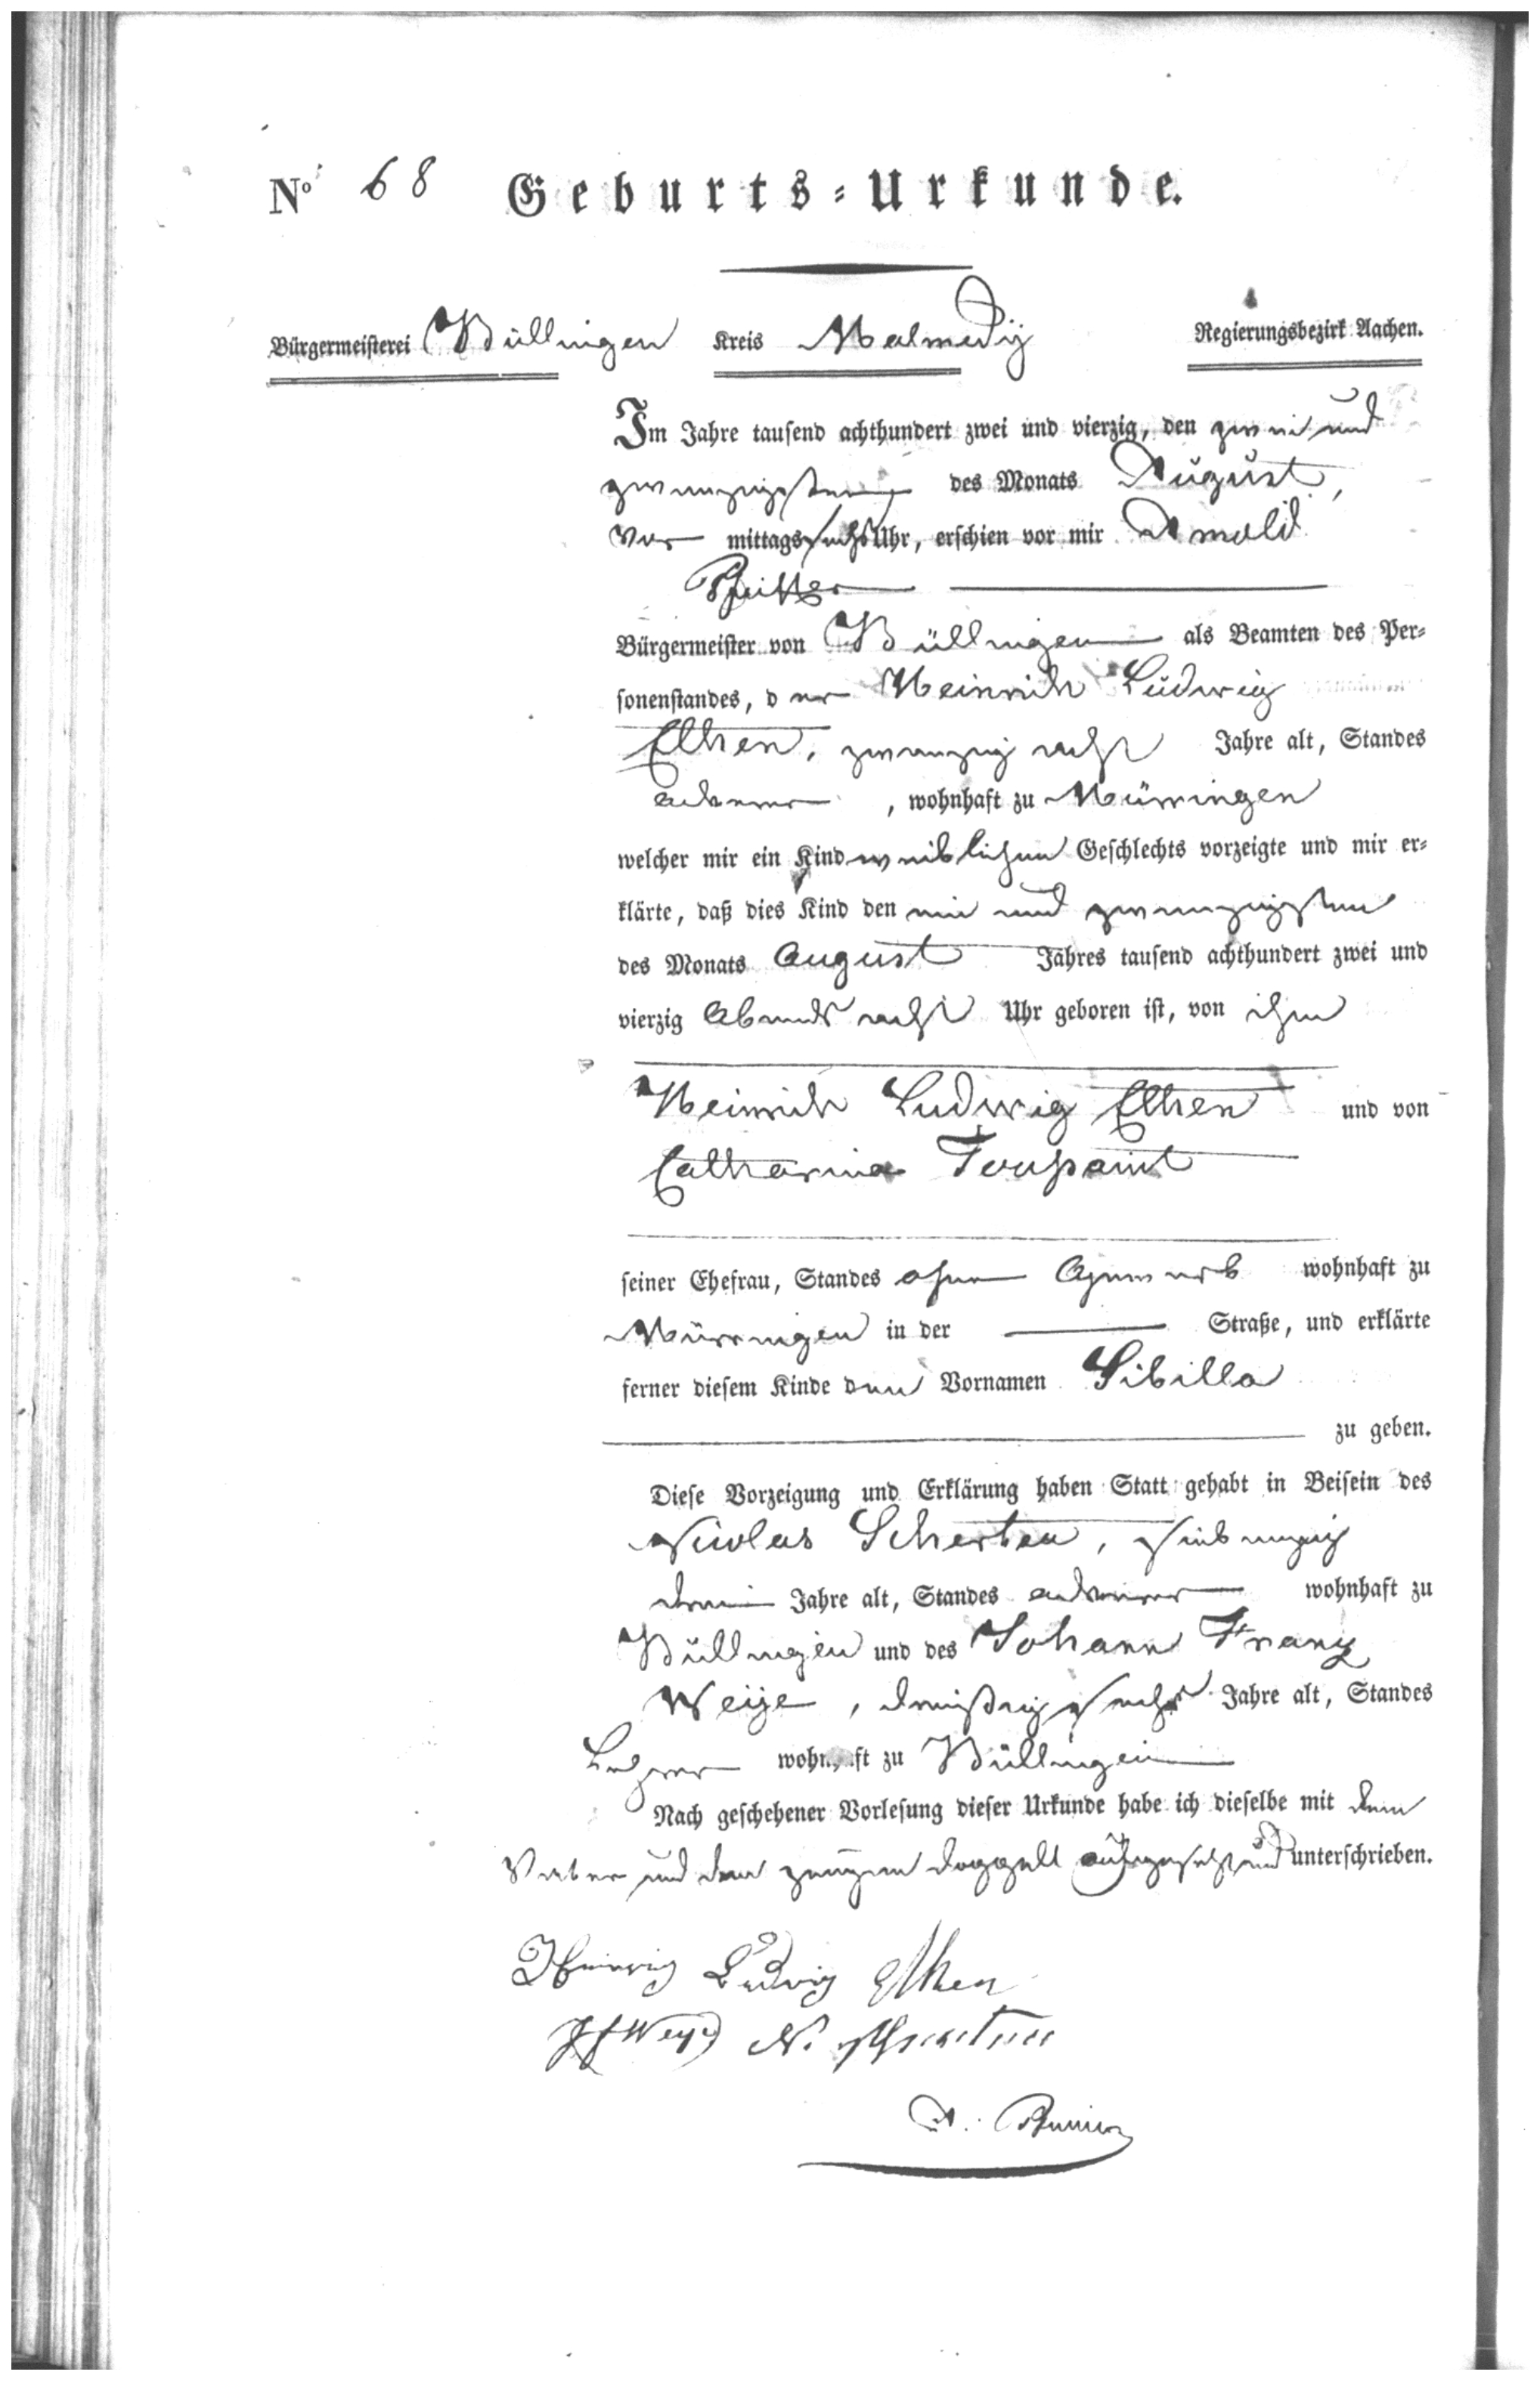 No 68 Geburts-Urkunde.
Bürgermeisterei Büllingen Kreis Malmedÿ Regierungsbezirk Aachen.
Im Jahre tausend achthundert zwei und vierzig, den zwei und
zwanzigsten des Monats August,
Vor mittags sechs Uhr, erschien vor mir Arnold
Bürgermeister von Büllingen als Beamten des Per-
sonenstandes, der Heinrich Ludwig
Elhen, zwanzig acht Jahre alt, Standes
ackerer, wohnhaft zu Mürringen
welcher mir ein Kind weiblichen Geschlechts vorzeigte und mir er-
klärte, daß dies Kind den ein und zwanzigsten
des Monats August Jahres tausend achthundert zwei und
vierzig Abends acht Uhr geboren ist, von ihm
Heinrich Ludwig Elhen und von
Catharina Toussaint
seiner Ehefrau, Standes ohne Gewerb wohnhaft zu
Mürringen in der Straße, und erklärte
ferner diesem Kinde den Vornamen Sibilla
zu geben.
Diese Vorzeigung und Erklärung haben Statt gehabt in Beisein des
Nicolas, siebenzig
drei Jahre alt, Standes ackerer wohnhaft zu
Büllingen und des Johann Franz
Weije, dreißig sechs Jahre alt, Standes
Lehrer wohnhaft zu Büllingen
Nach geschehener Vorlesung dieser Urkunde habe ich dieselbe mit dem
Vater und den zeugen doppelt ausgefertigt und unterschrieben.
Heinrig Ludwig Elhen
N.
A.